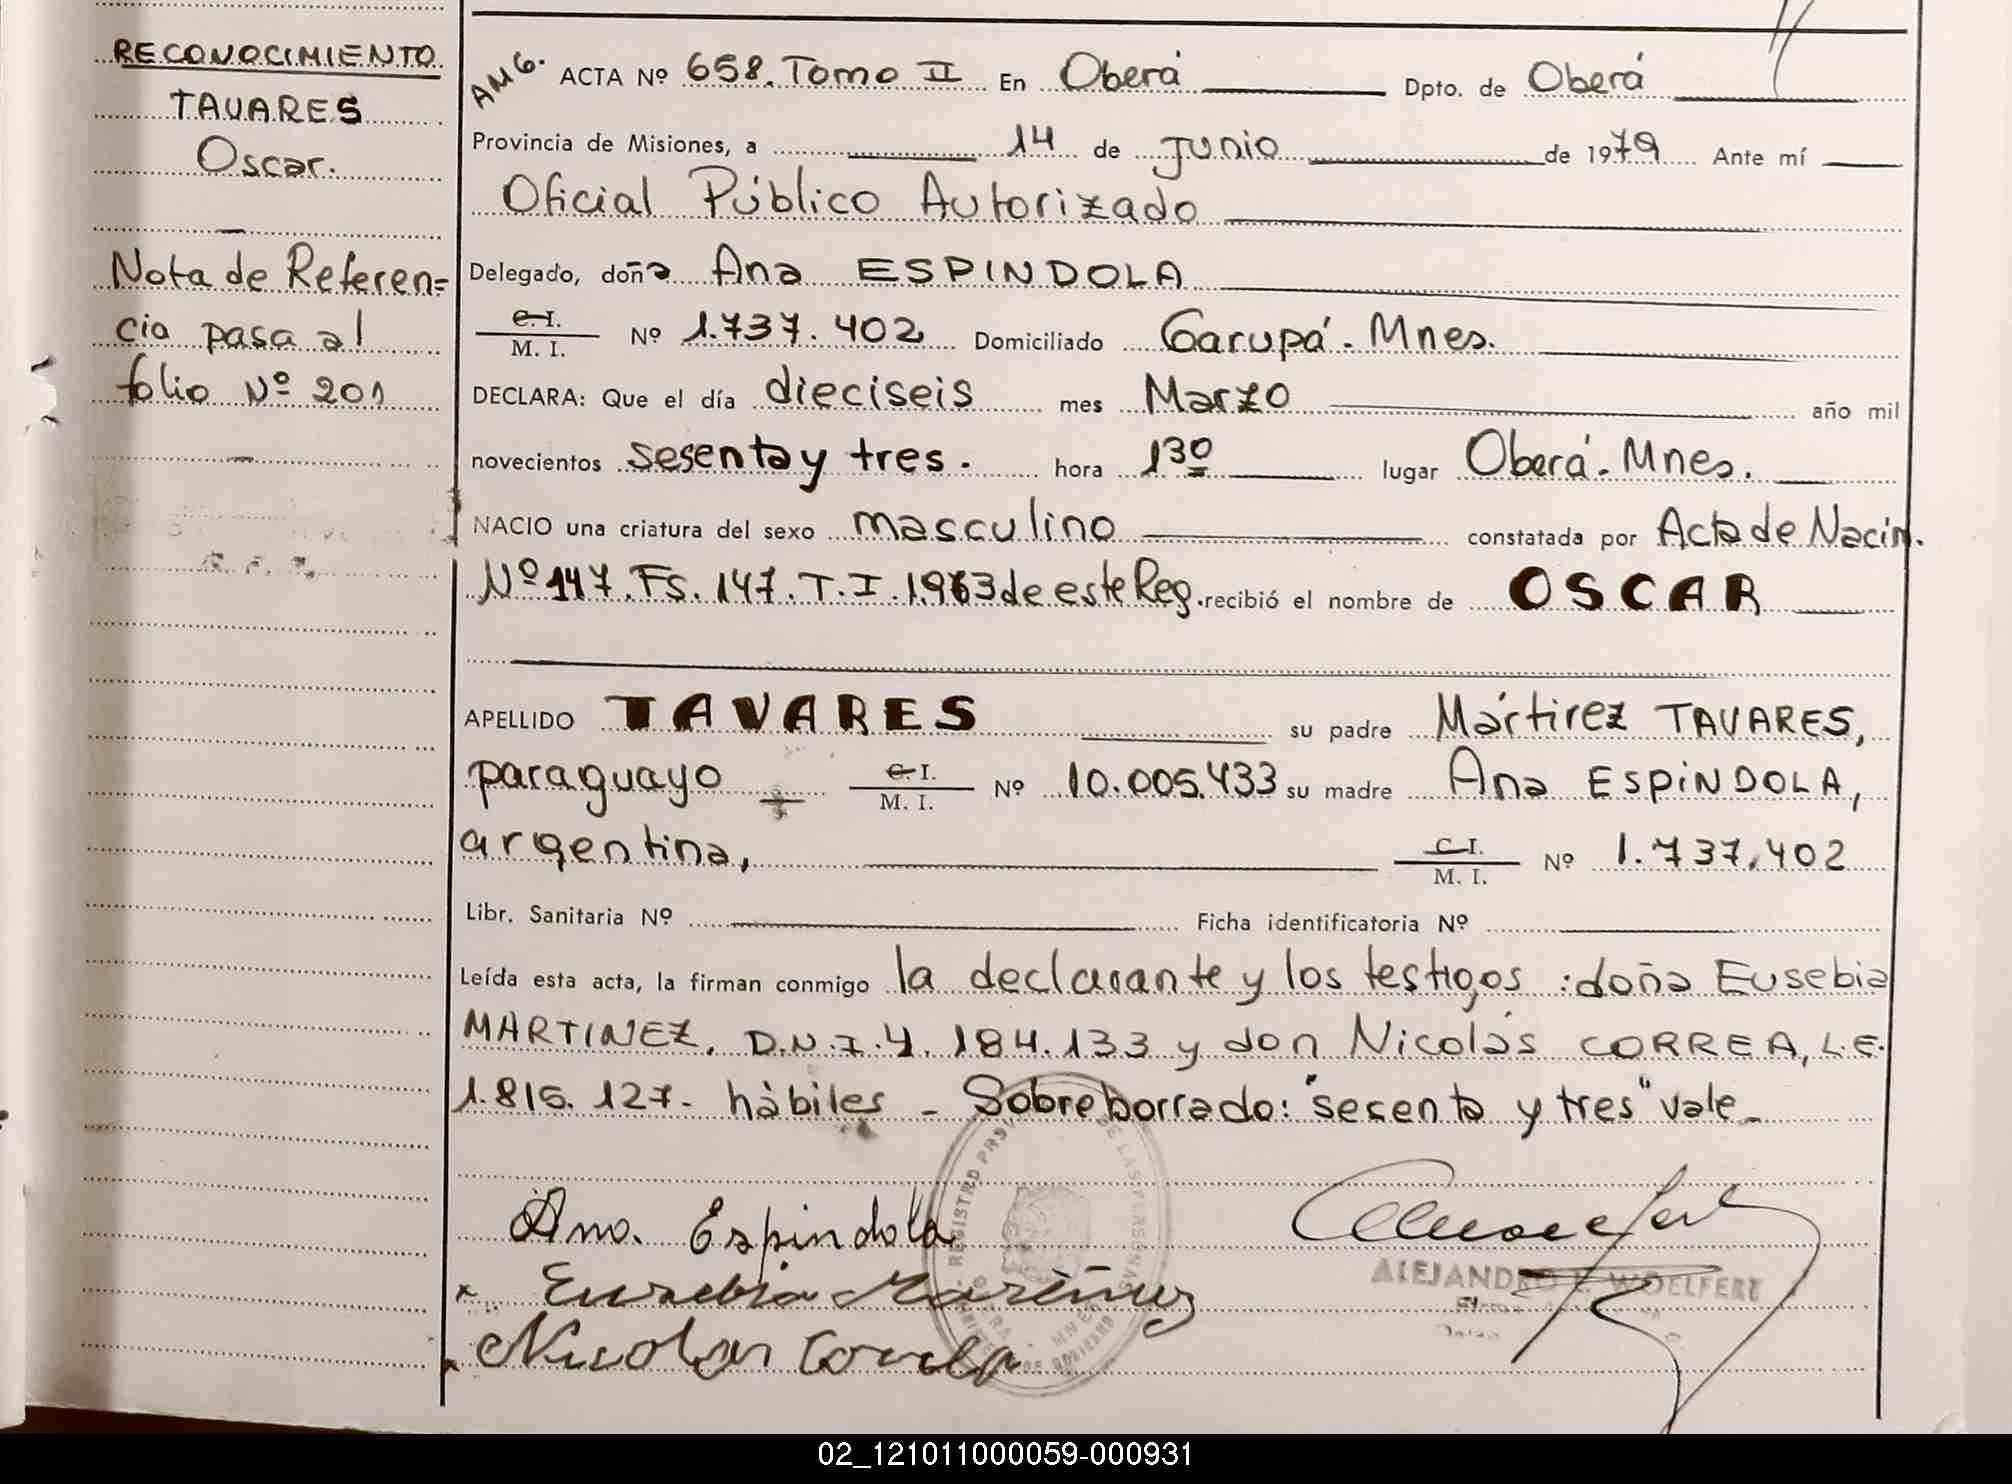 RECONOCIMIENTO
TAVARES
Oscar.
Nota de Referen=
cia pasa al
folio Nº 201
AMG.
ACTA Nº 658. Tomo II En Oberá Dpto. de Oberá
Provincia de Misiones, a 14 de Junio de 1979 Ante mí
Oficial Público Autorizado
Delegado, doña Ana ESPINDOLA
C.I. / M. I. Nº 1.737.402 Domiciliado Garupá. Mnes.
DECLARA: Que el día dieciseis mes Marzo año mil
novecientos sesenta y tres. hora 1³⁰ lugar Oberá. Mnes.
NACIO una criatura del sexo masculino constatada por Acta de Nacim.
Nº 147. Fs. 147. T. I. 1.963 de este Reg. recibió el nombre de OSCAR
APELLIDO TAVARES su padre Mártirez TAVARES,
paraguayo C.I. / M. I. Nº 10.005.433 su madre Ana ESPINDOLA,
argentina, C.I. / M. I. Nº 1.737.402
Libr. Sanitaria Nº Ficha identificatoria Nº
Leída esta acta, la firman conmigo la declarante y los testigos: doña Eusebia
MARTINEZ, D.N.I. 4.184.133 y don Nicolás CORREA, L.E.
1.815.127- hábiles - Sobreborrado: "secenta y tres" vale-
Ana. Espindola
Eusebia Martinez
Nicolas Correa
ALEJANDRO E. WOELFERT
02_121011000059-000931